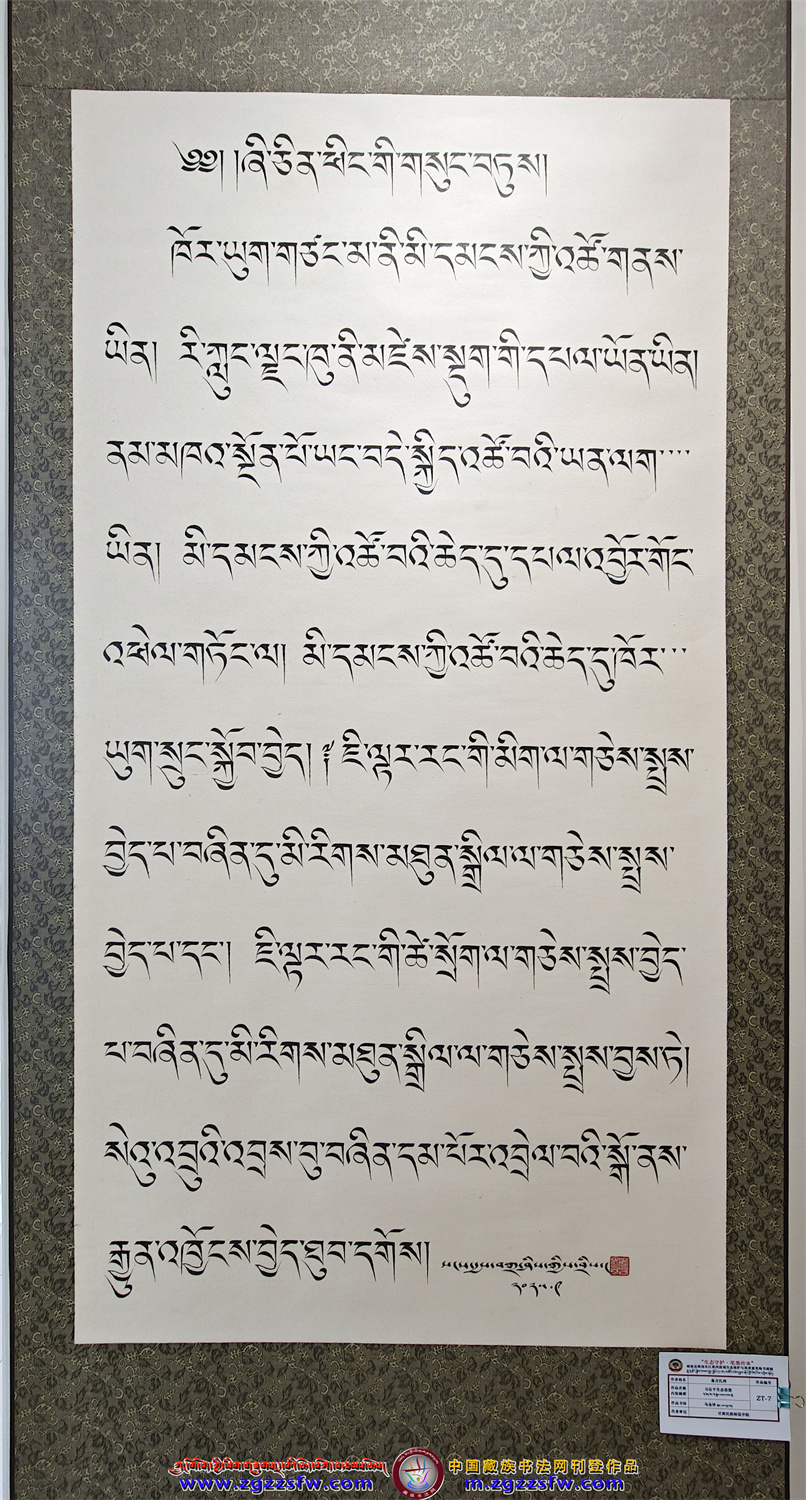 ༄༅། །ཞི་ཅིན་ཕིང་གི་གསུང་བཏུས།
ཁོར་ཡུག་གཙང་མ་ནི་མི་དམངས་ཀྱི་འཚོ་གནས་
ཡིན། རི་ཀླུང་ལྗང་ཁུ་ནི་མཛེས་སྡུག་གི་དཔལ་ཡོན་ཡིན།
ནམ་མཁའ་སྔོན་པོ་ཡང་བདེ་སྐྱིད་འཚོ་བའི་ཡན་ལག་་་་
ཡིན། མི་དམངས་ཀྱི་འཚོ་བའི་ཆེད་དུ་དཔལ་འབྱོར་གོང་
འཕེལ་གཏོང་ལ། མི་དམངས་ཀྱི་འཚོ་བའི་ཆེད་དུ་ཁོར་་་
ཡུག་སྲུང་སྐྱོབ་བྱེད། ཇི་ལྟར་རང་གི་མིག་ལ་གཅེས་སྤྲས་
བྱེད་པ་བཞིན་དུ་མི་རིགས་མཐུན་སྒྲིལ་ལ་གཅེས་སྤྲས་
བྱེད་པ་དང་། ཇི་ལྟར་རང་གི་ཚེ་སྲོག་ལ་གཅེས་སྤྲས་བྱེད་
པ་བཞིན་དུ་མི་རིགས་མཐུན་སྒྲིལ་ལ་གཅེས་སྤྲས་བྱས་ཏེ།
སེའུ་འབྲུའི་འབྲས་བུ་བཞིན་དམ་པོར་འབྲེལ་བའི་སྒོ་ནས་
རྒྱུན་འཁྱོངས་བྱེད་ཐུབ་དགོས།
༢༠༢༥.༩
"生态守护·笔墨传承"
作者姓名
作品编号
ZT-7
中国藏族书法网刊登作品
www.zgzzsfw.com
m.zgzzsfw.com